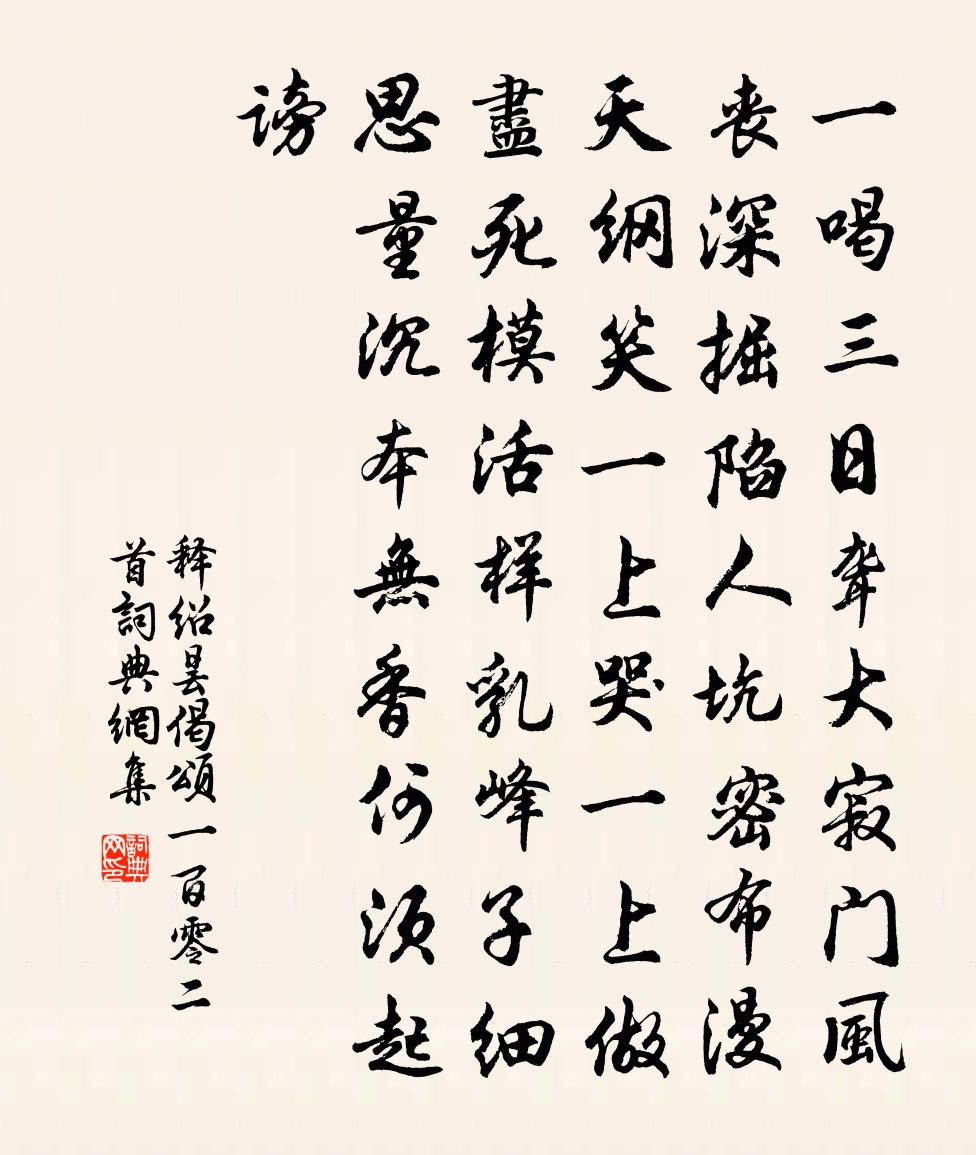 一喝三日聋大寂门風
丧深掘陷人坑密布漫
天綱笑一上哭一上做
盡死模活样乳峰子细
思量沉本無香何须起
谤
释绍昙偈頌一百零二
首詞典網集
詞典网印